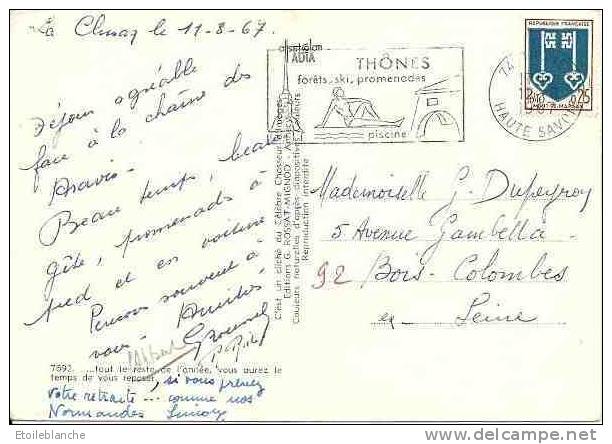 La Clusaz le 11-8-67.
Séjour agréable
face à la chaîne des
Aravis.
Beau temps, beau
gîte, promenades à
pied et en voiture
Pensons souvent à
vous. Amitiés,
7692. ....tout le reste de l'année, vous aurez le
temps de vous reposer, si vous prenez
votre retraite... comme nos
Normandes
C'est un cliché du Célèbre Chasseur d'Images
Editions G. ROSSAT-MIGNOD - Annecy
Couleurs naturelles d'après diapositives couleurs
Reproduction interdite
ADIA
THÔNES
forêts, ski, promenades
piscine
74
HAUTE SAVOIE
REPUBLIQUE FRANÇAISE
0,25
MONT-DE-MARSAN
Mademoiselle G. Dupeyroy
5 Avenue Gambetta
92 Bois-Colombes
Seine
Etoileblanche
http://etoileblanche.delcampe.net